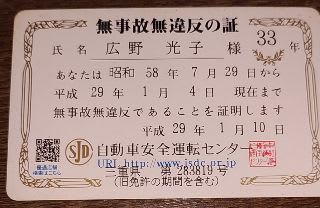 無事故無違反の証
氏名 広野 光子 様 33年
あなたは 昭和 58 年 7 月 29 日から
平成 29 年 1 月 4 日 現在まで
無事故無違反であることを証明します
平成 29 年 1 月 10 日
SJD 自動車安全運転センター
URL http://www.jsdc.or.jp
三重県 第 283819 号
(旧免許の期間を含む)